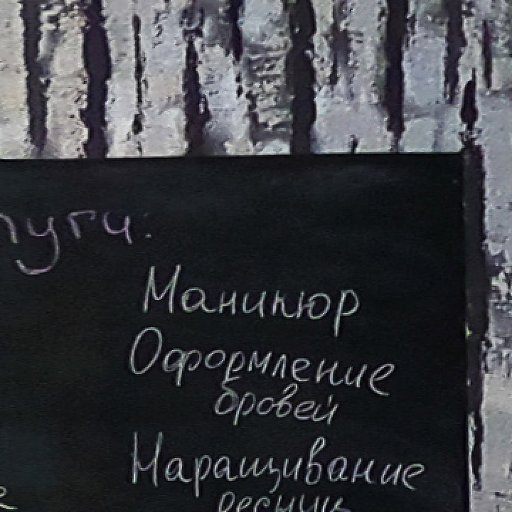 луги:
Маникюр
Оформление
бровей
Наращивание
ресниц